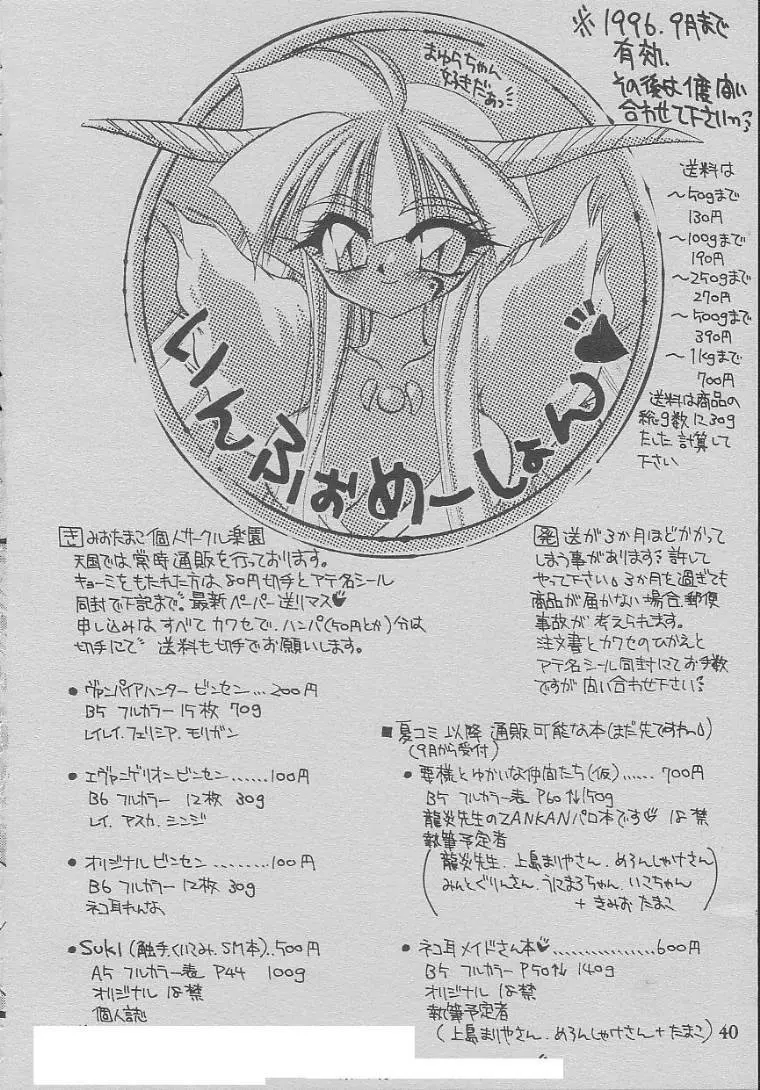 ※1996.9月まで
有効.
その後は1度問い
合わせて下さいっ
まゆらちゃん
好きだぁっ
送料は
～50gまで
130円
～100gまで
190円
～250gまで
270円
～500gまで
390円
～1kgまで
700円
送料は商品の
総g数に30g
たした計算して
下さい
いんふぉめーしょん♥
きみおたまこ個人サークル楽園
天国では常時通販を行っております。
キョーミをもたれた方は80円切手とアテ名シール
同封で下記まで最新ペーパー送リマス♥
申し込みはすべてカワセで.ハンパ(50円とか)分は
切手にて 送料も切手でお願いします。
発送が3か月ほどかかって
しまう事があります 許して
やって下さい 3か月を過ぎても
商品が届かない場合.郵便
事故が考えられます。
注文書とカワセのひかえと
アテ名シール同封にてお手数
ですが問い合わせ下さい
●ヴァンパイアハンター ビンセン...200円
B5 フルカラー 15枚 70g
レイレイ.フェリシア.モリガン
●エヴァンゲリオンビンセン......100円
B6 フルカラー 12枚 30g
レイ.アスカ.シンジ
●オリジナルビンセン........100円
B6 フルカラー 12枚 30g
ネコ耳れんな
●Suki(触手.くいこみ.SM本)..500円
A5 フルカラー表 P44 100g
オリジナル 18禁
個人誌
■夏コミ以降 通販可能な本(まだ先ですわっ)
(9月から受付)
●要様とゆかいな仲間たち(仮)......700円
B5 フルカラー表 P60↑↓150g
龍炎先生のZANKANパロ本です♥ 18禁
執筆予定者
(龍炎先生.上島まりやさん.めろんしゃけさん
みんとぐりんさん.うにまろちゃん.いこちゃん
+きみおたまこ)
●ネコ耳メイドさん本♥.................600円
B5 フルカラー P50↑↓ 140g
オリジナル 18禁
執筆予定者
(上島まりやさん.めろんしゃけさん+たまこ)
40